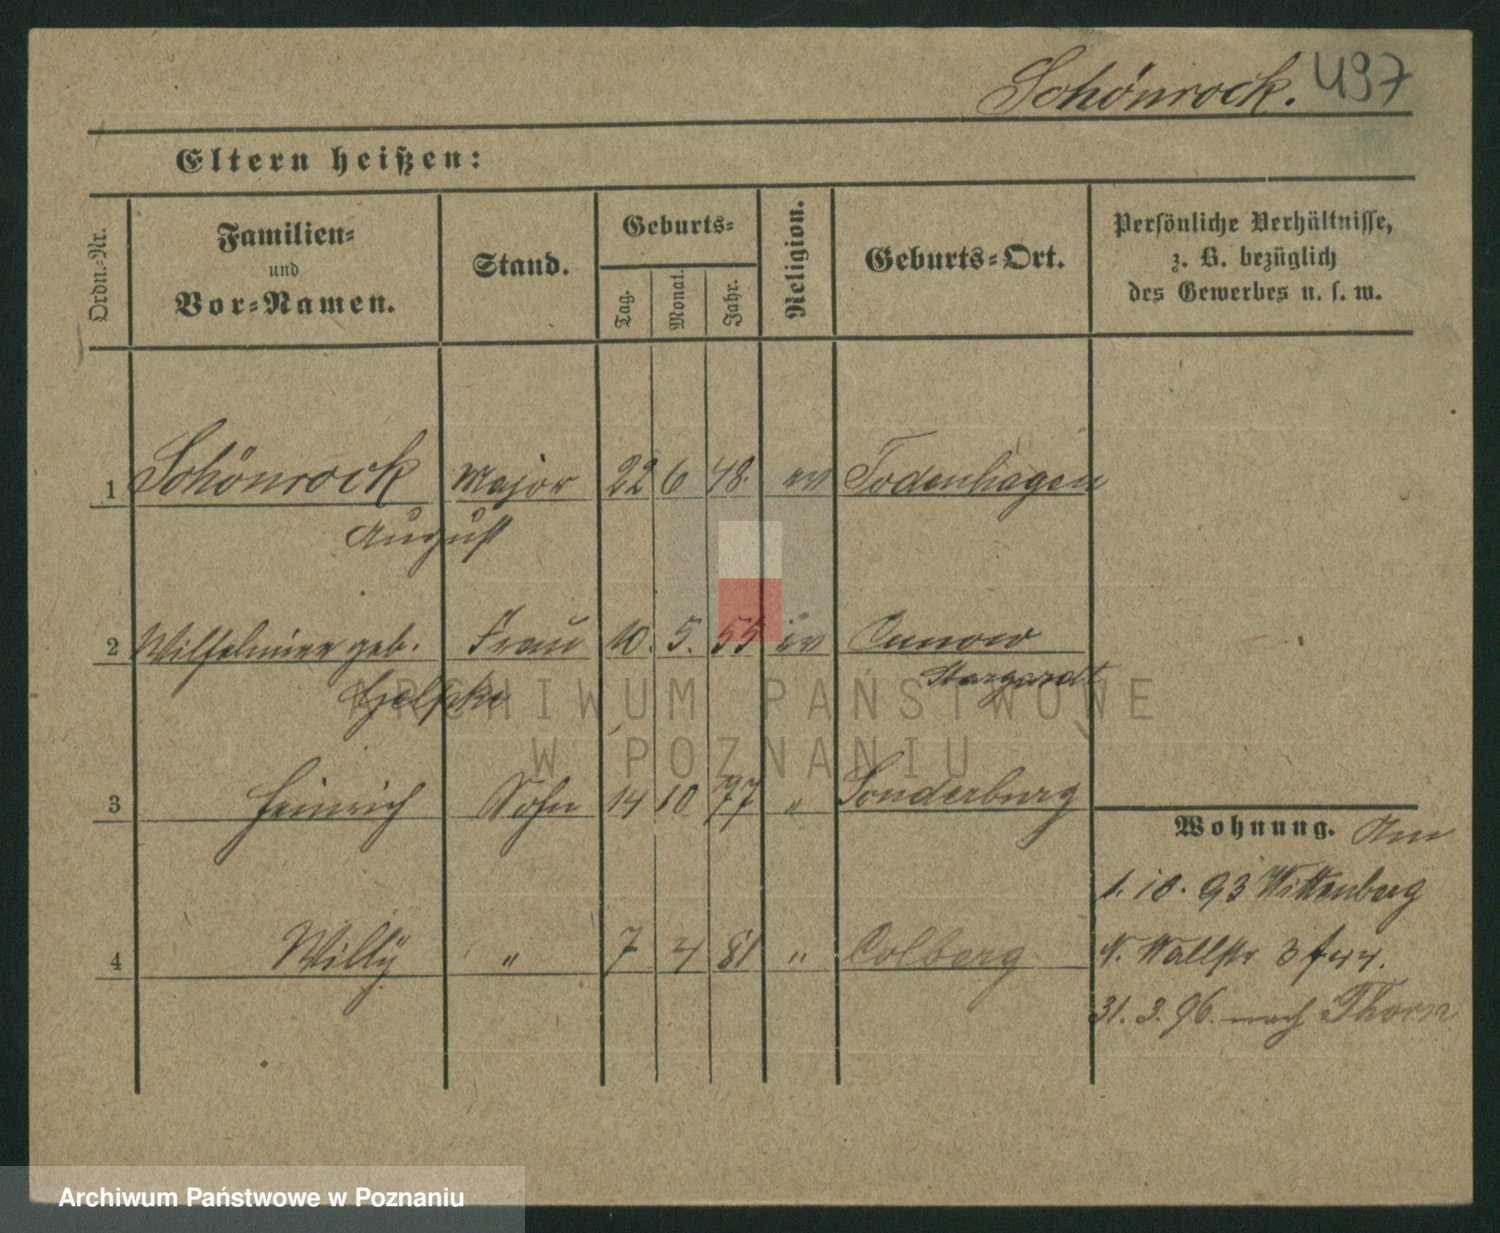 Schönrock. 497
Eltern heißen:
Ordn.-Nr.
Familien-
und
Vor-Namen.
Stand.
Geburts-
Tag.
Monat.
Jahr.
Religion.
Geburts-Ort.
Persönliche Verhältnisse,
z. B. bezüglich
des Gewerbes u. s. w.
1 Schönrock Major 22 6 48. ev Todenhagen
August
2 Wilhelmine geb. Frau 10. 5. 55 ev Cunow
Stargardt
3 Heinrich Sohn 14 10 77 " Sonderburg
Wohnung. Am
1. 10. 93 Wittenberg
4 Willy " 7 4 81 " Colberg
N. Wallstr 3
31. 3. 96. nach Thorn
ARCHIWUM PAŃSTWOWE
W POZNANIU
Archiwum Państwowe w Poznaniu